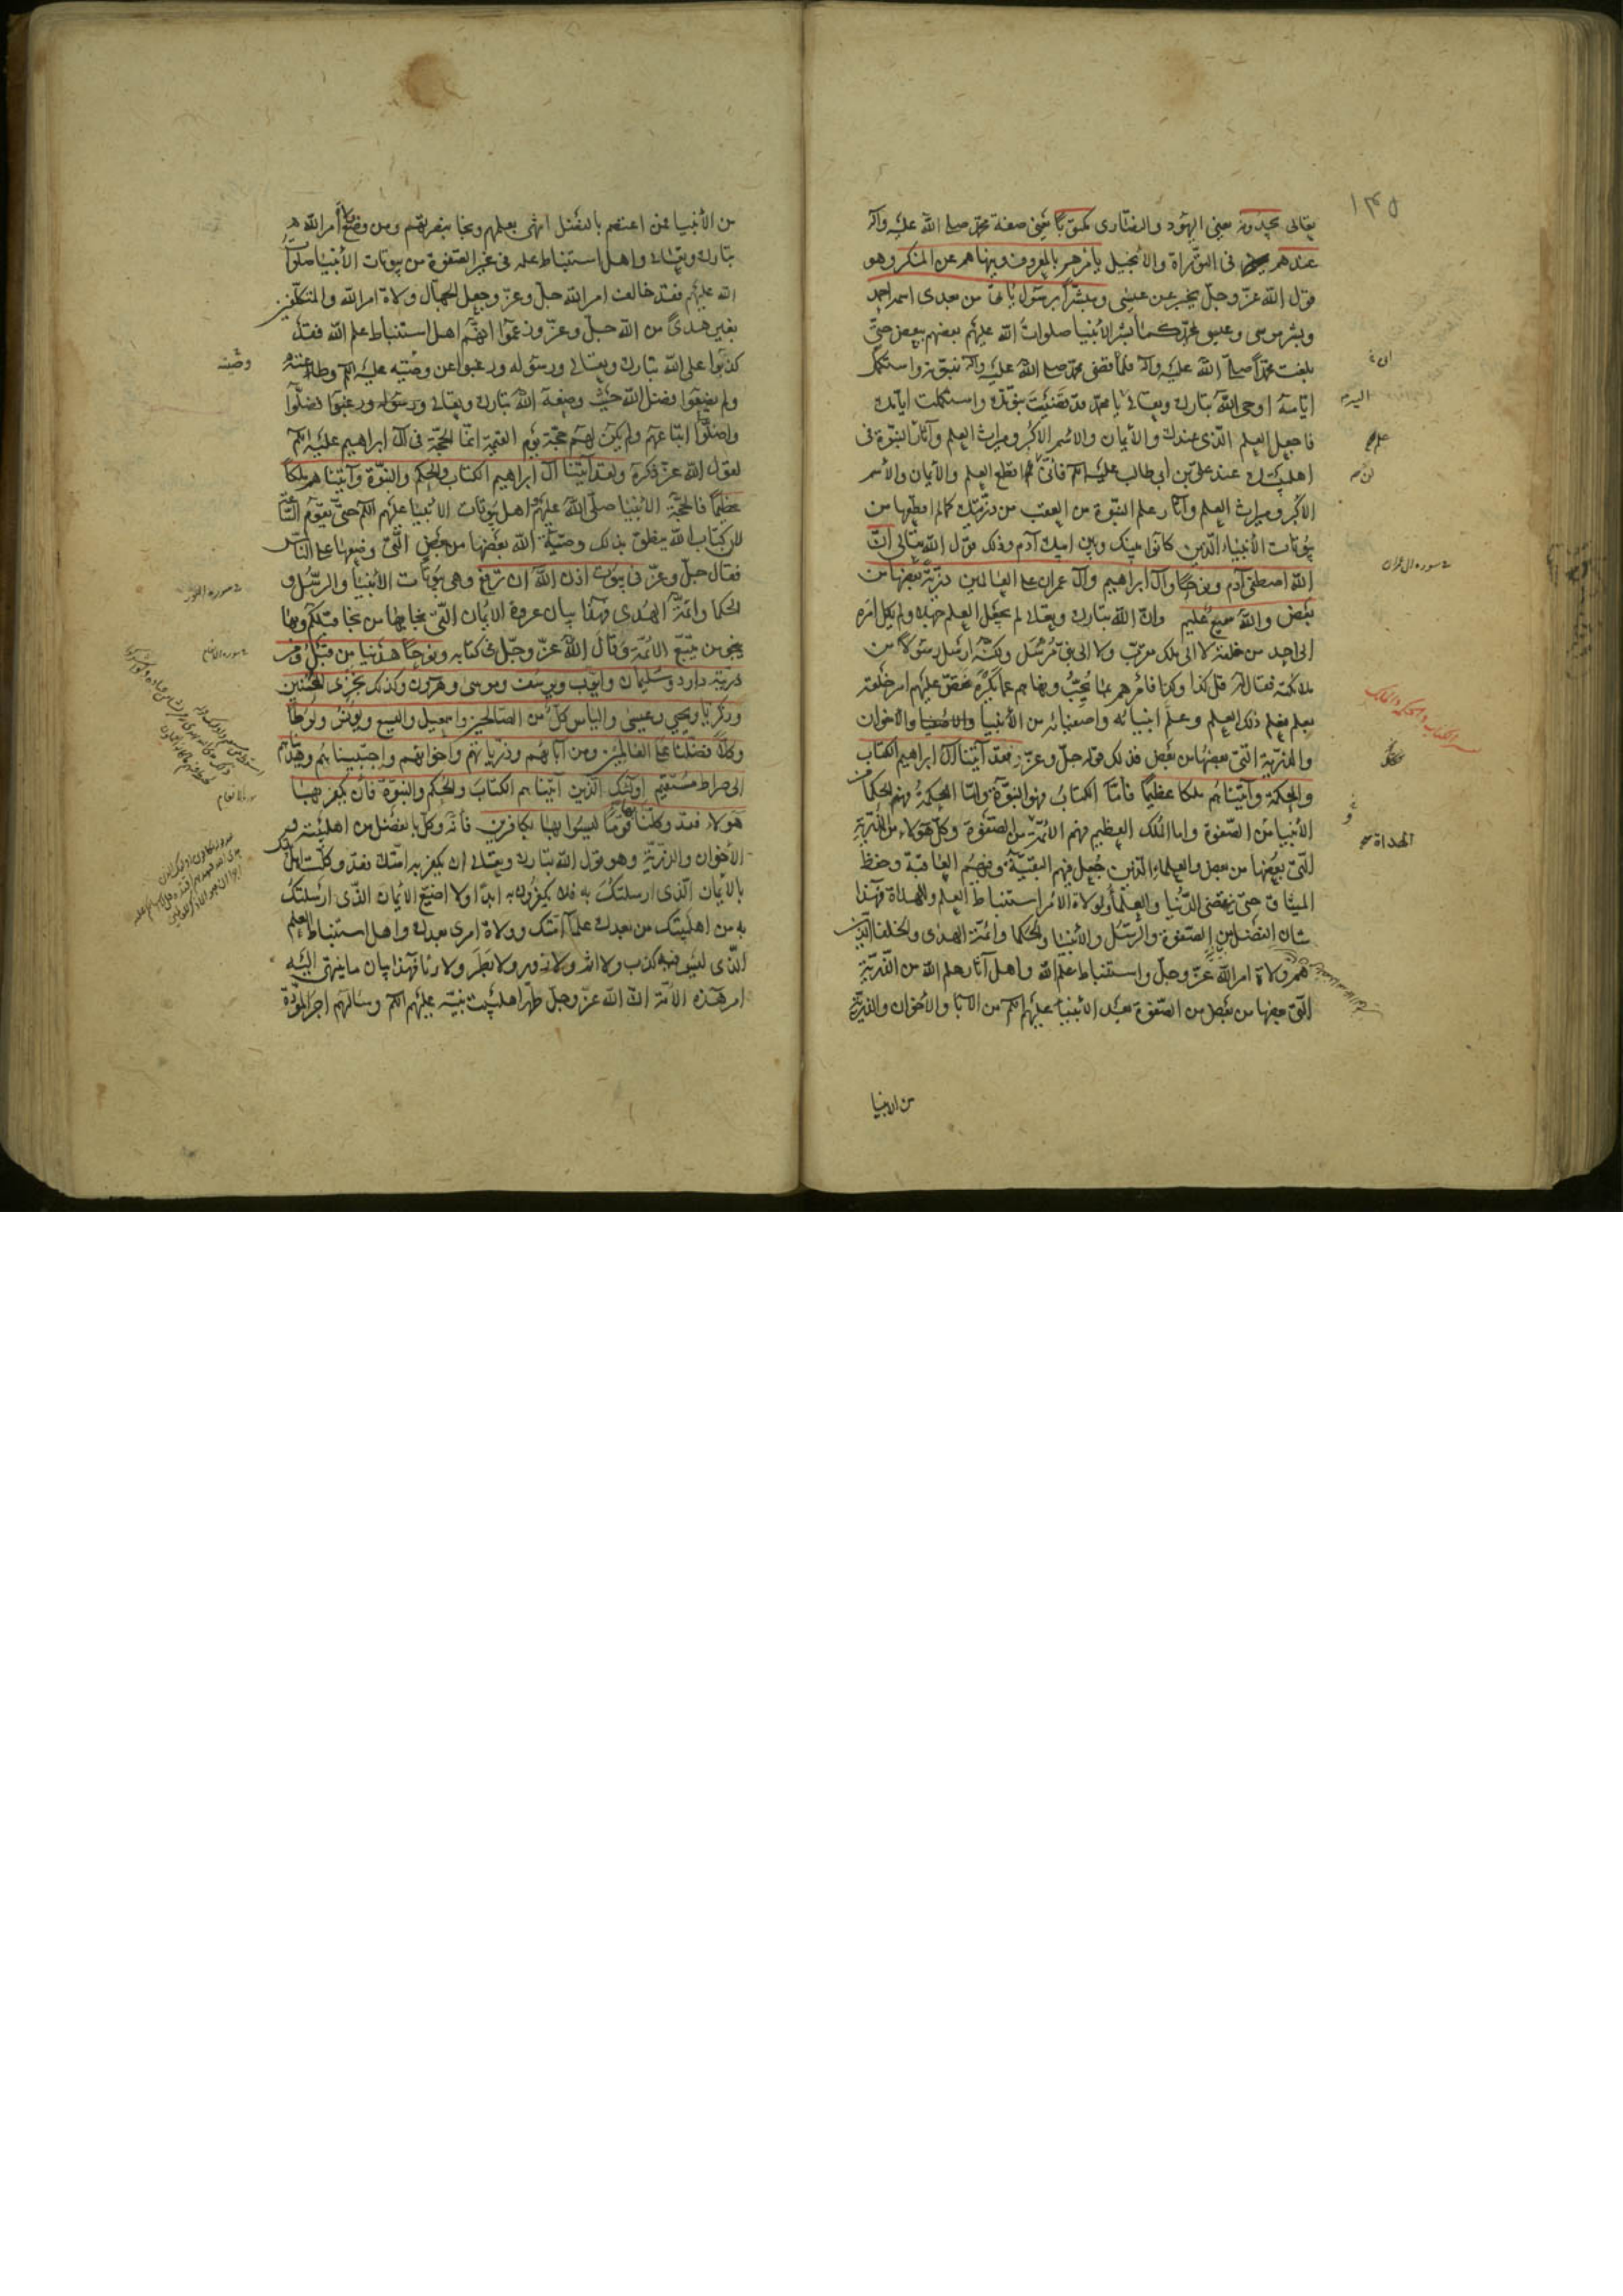 ١٣٥
تعالى يجدونه يعني اليهود والنصارى مكتوبا يعني صفة محمد صلى الله عليه وآله
عندهم في التوراة والانجيل يأمرهم بالمعروف وينهاهم عن المنكر وهو
قول الله عز وجل يخبر عن عيسى ومبشرا برسول يأتي من بعدي اسمه احمد
وبشر موسى وعيسى بمحمد كما بشر الأنبيا صلوات الله عليهم بعضهم ببعض حتى
بلغت محمدا صلى الله عليه وآله فلما قضى محمد صلى الله عليه وآله نبوته واستكمل
ايامه اوحى الله تبارك وتعالى يا محمد قد قضيت نبوتك واستكملت ايامك
فاجعل العلم الذي عندك والأيمان والاسم الاكبر وميراث العلم وآثار النبوة في
اهل بيتك عند علي بن أبي طالب عليه السلم فاني لم اقطع العلم والأيمان والأسم
الاكبر وميراث العلم وآثار علم النبوة من العقب من ذريتك كما لم اقطعها من
بيوتات الأنبياء الذين كانوا بينك وبين ابيك آدم وذلك قول الله تعالى ان
الله اصطفى آدم ونوحا وآل ابراهيم وآل عمران على العالمين ذرية بعضها من
بعض والله سميع عليم وان الله تبارك وتعالى لم يجعل العلم جهلا ولم يكل امره
الى احد من خلقه لا الى ملك مقرب ولا الى نبي مرسل ولكنه ارسل رسولا من
ملائكته فقال له قل كذا وكذا فأمرهم بما يحب ونهاهم عما يكره فقص عليهم امر خلقه
بعلم فعلم ذلك العلم وعلم انبيائه واصفيائه من الأنبيا والاصفيا والأخوان
والذرية التي بعضها من بعض فذلك قوله جل وعز فقد آتينا آل ابراهيم الكتاب
والحكمة وآتيناهم ملكا عظيما فأما الكتاب فهو النبوة واما الحكمة فهم الحكما من
الأنبيا من الصفوة واما الملك العظيم فهم الائمة من الصفوة وكل هؤلاء من الذرية
التي بعضها من بعض والعلماء الذين جعل فيهم البقية وفيهم العاقبة وحفظ
الميثاق حتى تنقضي الدنيا والعلما ولولاة الامر استنباط العلم وللهداة فهذا
شان الفضل من الصفوة والرسل والأنبيا والحكما وائمة الهدى والخلفا الذين
هم ولاة امر الله عز وجل واستنباط علم الله واهل آثار علم الله من الذرية
التي بعضها من بعض من الصفوة بعد الأنبيا عليهم السلم من الآبا والأخوان والذرية
من الانبيا
اليه
علم
في سورة ال عمران
تفسير الكتاب والحكمة والملك
الهداة
من الأنبيا فمن اعتصم بالفضل انتهى بعلمهم ونجا بنصرتهم ومن وضع ولاة أمر الله
تبارك وتعالى واهل استنباط علمه في غير الصفوة من بيوتات الأنبيا صلوات
الله عليهم فقد خالف امر الله جل وعز وجعل الجهال ولاة امر الله والمتكلفين
بغير هدى من الله جل وعز وزعموا انهم اهل استنباط علم الله فقد
كذبوا على الله تبارك وتعالى ورسوله ورغبوا عن وصيه عليه السلم وطاعته
ولم يضعوا فضل الله حيث وضعه الله تبارك وتعالى ورسوله ورغبوا فضلوا
واضلوا اتباعهم ولم يكن لهم حجة يوم القيمة انما الحجة في آل ابراهيم عليه السلم
لقول الله عز ذكره ولقد آتينا آل ابراهيم الكتاب والحكم والنبوة وآتيناهم ملكا
عظيما فالحجة الأنبيا صلى الله عليهم واهل بيوتات الانبيا عليهم السلم حتى تقوم الساعة
لان كتاب الله ينطق بذلك وصية الله بعضها من بعض التي وضعها على الناس
فقال جل وعز في بيوت اذن الله ان ترفع وهي بيوتات الأنبيا والرسل و
الحكما وائمة الهدى فهذا بيان عروة الايمان التي نجا بها من نجا قبلكم وبها
ينجو من يتبع الائمة وقال الله عز وجل في كتابه ونوحا هدينا من قبل ومن
ذريته داود وسليمان وايوب ويوسف وموسى وهرون وكذلك نجزي المحسنين
وزكريا ويحيى وعيسى والياس كل من الصالحين واسمعيل واليسع ويونس ولوطا
وكلا فضلنا على العالمين ومن آبائهم وذرياتهم واخوانهم واجتبيناهم وهديناهم
الى صراط مستقيم اولئك الذين آتيناهم الكتاب والحكم والنبوة فان يكفر بها
هؤلاء فقد وكلنا بها قوما ليسوا بها بكافرين فأنه وكل بالفضل من اهل بيته
الأخوان والذرية وهو قول الله تبارك وتعالى ان يكفر به امتك فقد وكلت اهل
بالأيمان الذي ارسلتك به فلا يكفرون به ابدا ولا اضيع الأيمان الذي ارسلتك
به من اهل بيتك من بعدك علما امتك وولاة امري بعدك واهل استنباط العلم
الذي ليس فيه كذب ولا اثم ولا زور ولا بطر ولا رئا فهذا بيان ما ينتهي اليه
امر هذه الأمة ان الله عز وجل طهر اهل بيت نبيه عليهم السلم وسألهم اجر المودة
وصيه
في سورة النور
في سورة الانعام